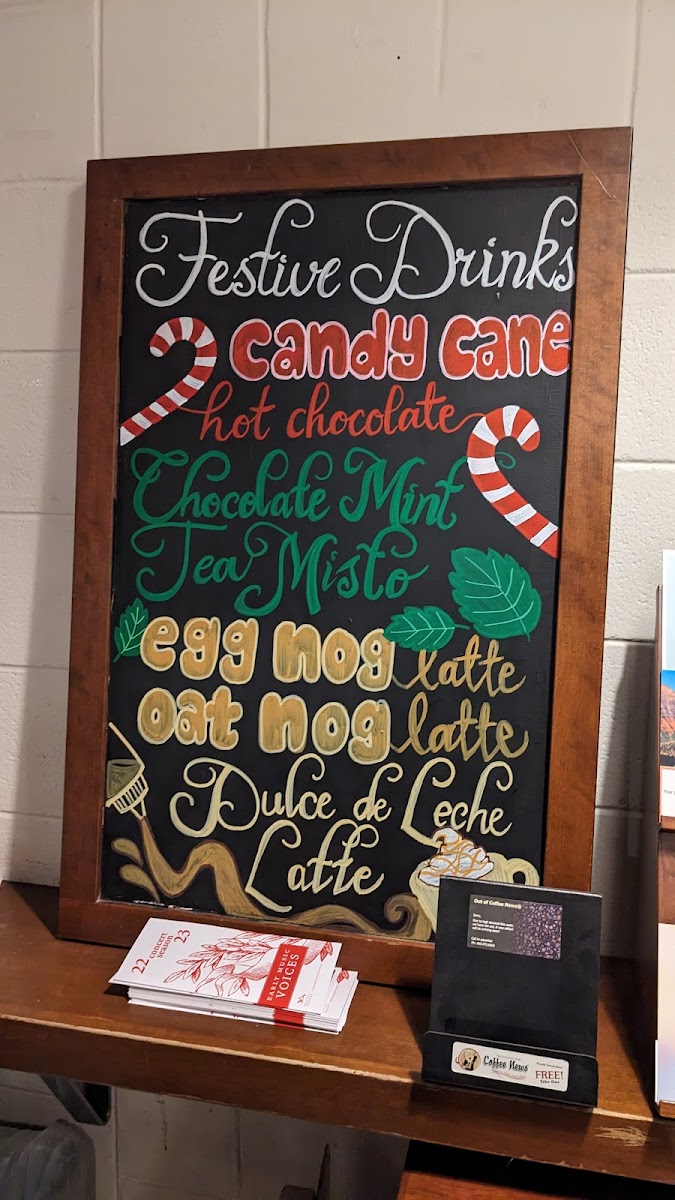 Festive Drinks
candy cane
hot chocolate
Chocolate Mint
Tea Misto
egg nog latte
oat nog latte
Dulce de Leche
Latte
22 concert season 23
EARLY MUSIC
VOICES
Out of Coffee News®
Sorry,
Coffee News
FREE!
Take One